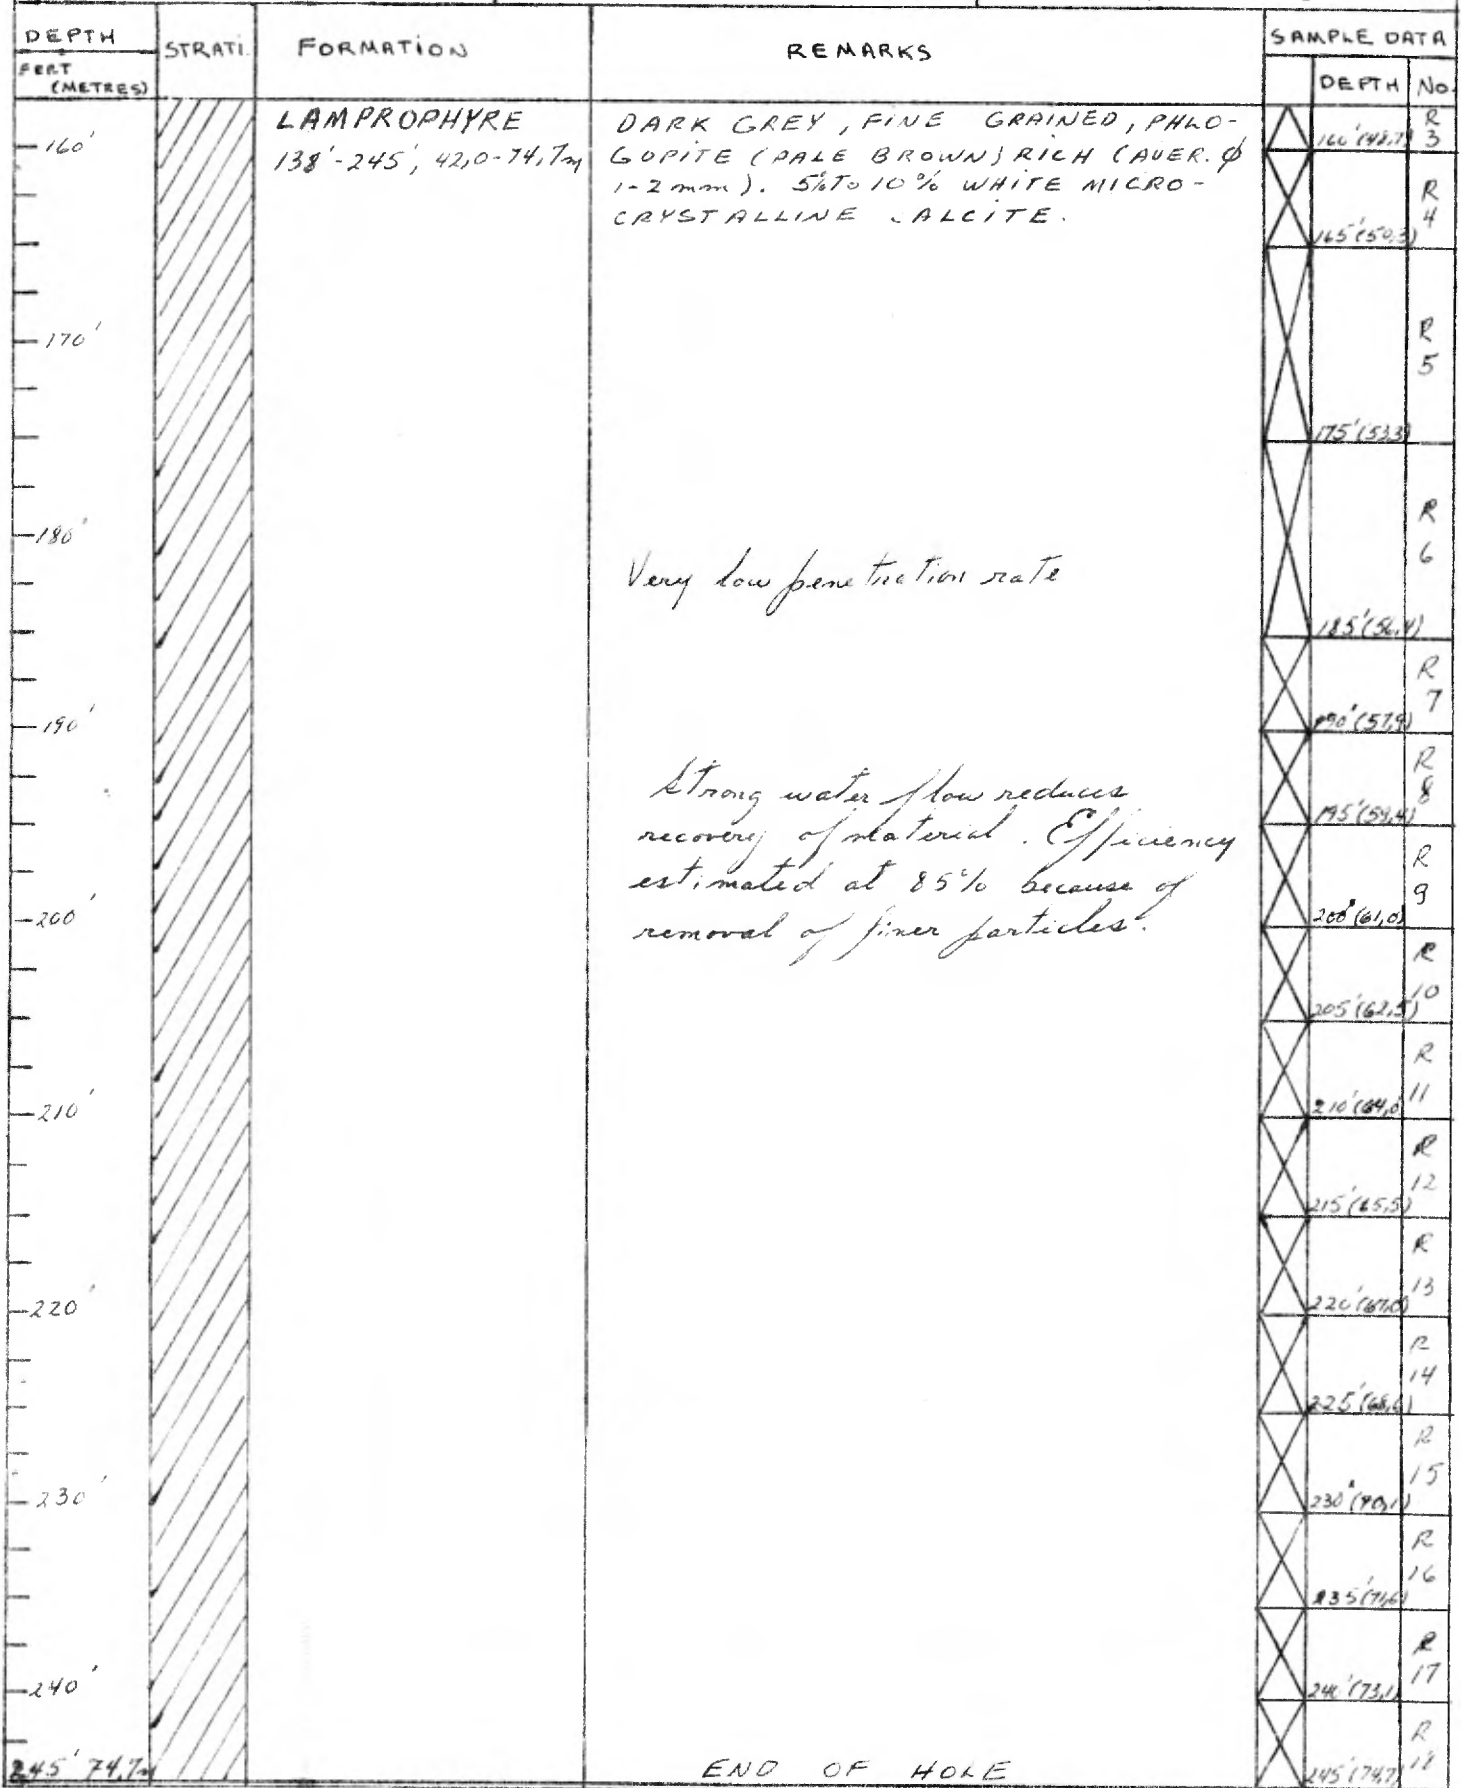 DEPTH
FEET
(METRES)
STRATI.
FORMATION
REMARKS
SAMPLE DATA
DEPTH
No.
LAMPROPHYRE
138'-245', 42,0-74,7m
DARK GREY, FINE GRAINED, PHLO-
GOPITE (PALE BROWN) RICH (AVER. Ø
1-2 mm). 5% TO 10% WHITE MICRO-
CRYSTALLINE CALCITE.
Very low penetration rate
Strong water flow reduces
recovery of material. Efficiency
estimated at 85% because of
removal of finer particles.
END OF HOLE
160'
170'
180'
190'
200'
210'
220'
230'
240'
245' 74,7m
160' (48,7) R 3
165' (50,3) R 4
175' (53,3) R 5
185' (56,4) R 6
190' (57,9) R 7
195' (59,4) R 8
200' (61,0) R 9
205' (62,5) R 10
210' (64,0) R 11
215' (65,5) R 12
220' (67,0) R 13
225' (68,6) R 14
230' (70,1) R 15
235' (71,6) R 16
240' (73,1) R 17
245' (74,7) R 18